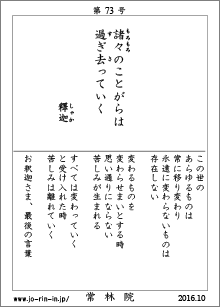 第 73 号
諸々のことがらは
もろもろ
過ぎ去っていく
す さ
釋迦
しゃか
この世の
あらゆるものは
常に移り変わり
永遠に変わらないものは
存在しない
変わるものを
変わらせまいとする時
思い通りにならない
苦しみが生まれる
すべては変わっていく
と受け入れた時
苦しみは離れていく
お釈迦さま、最後の言葉
www.jo-rin-in.jp/
常 林 院
2016.10